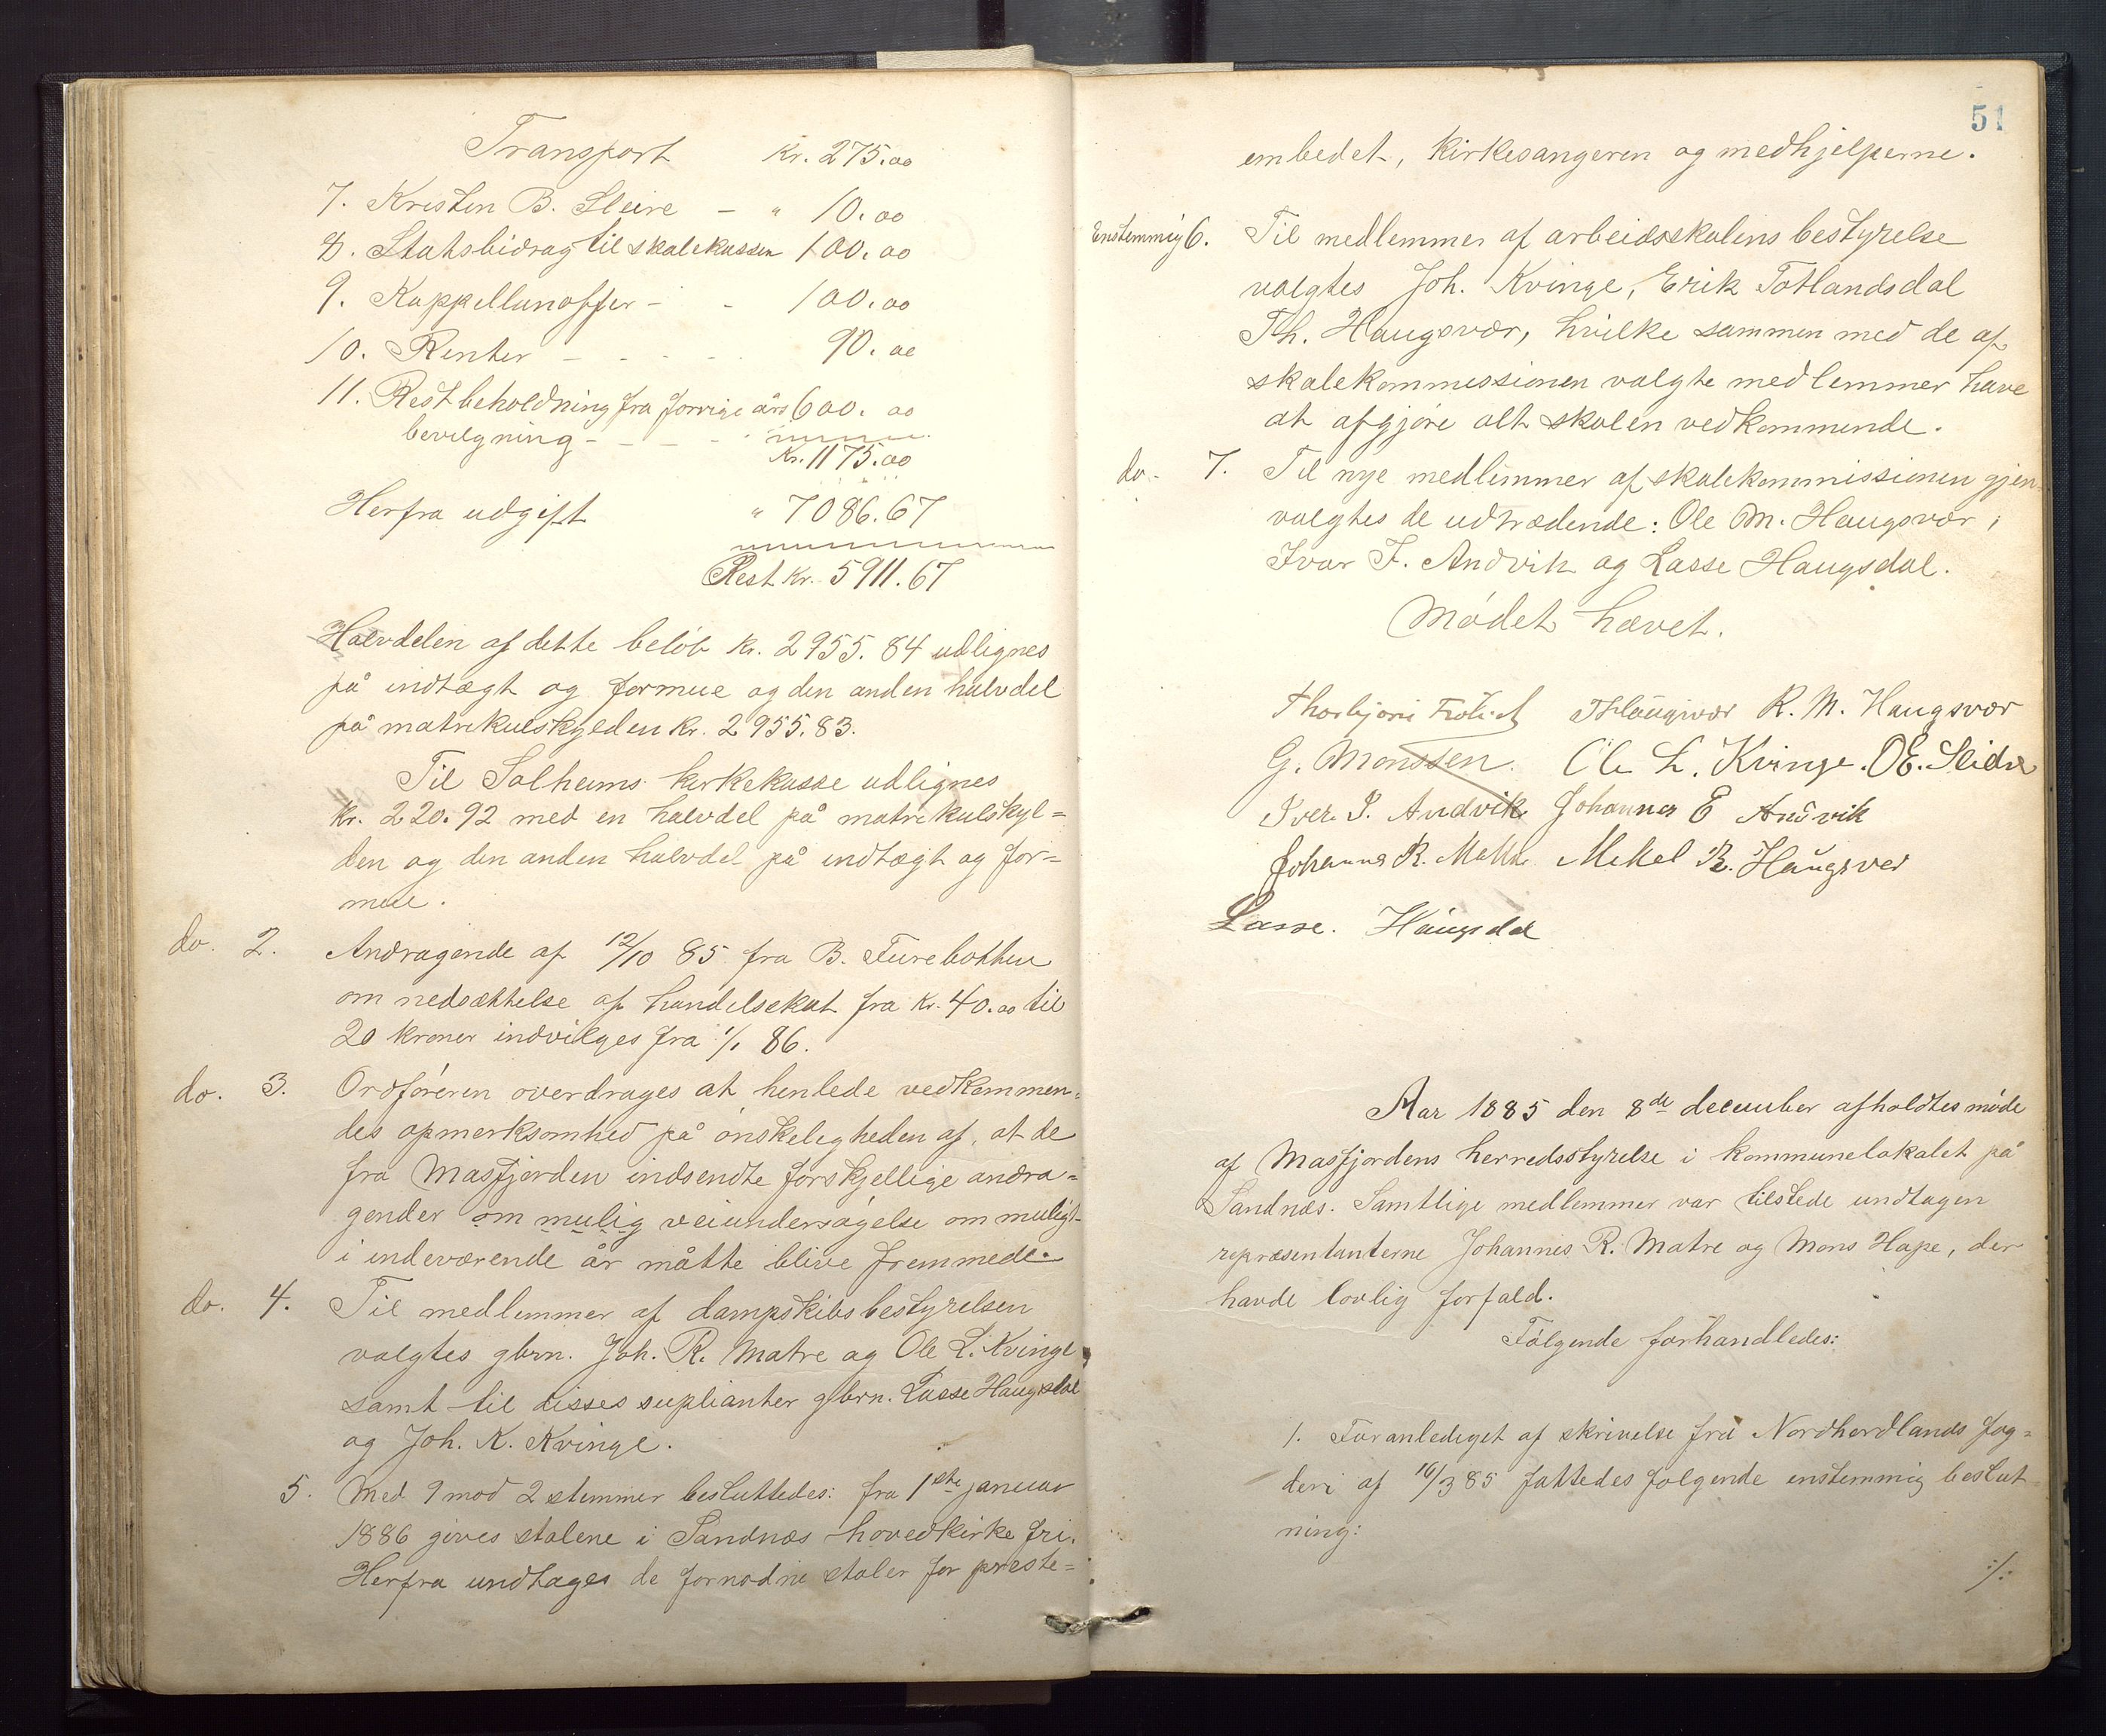 Transport Kr. 275.00
7. Kristen B. Sleire - " 10.00
8. Statsbidrag til skolekassen 100.00
9. Kappellanoffer - - 100.00
10. Renter - - - - 90.00
11. Restbeholdning fra forrige års 600.00
bevilgning - - - -
Kr. 1175.00
Herfra udgift " 7086.67
Rest Kr. 5911.67
Halvdelen af dette beløb Kr. 2955.84 udlignes
på indtægt og formue og den anden halvdel
på matrikulskylden Kr. 2955.83.
Til Solheims kirkekasse udlignes
Kr. 220.92 med en halvdel på matrikulskyl=
den og den anden halvdel på indtægt og for=
mue.
do. 2. Andragende af 12/10 85 fra B. Furebotten
om nedsættelse af handelsskat fra Kr. 40.00 til
20 kroner indvilges fra 1/1 86.
do. 3. Ordføreren overdrages at henlede vedkommen=
des opmerksomhed på ønskeligheden af, at de
fra Masfjorden indsendte forskjellige andra=
gender om mulig veiundersøgelse om muligt
i indeværende år måtte blive fremmede.
do. 4. Til medlemmer af dampskibsbestyrelsen
valgtes gbrn. Joh. R. Matre og Ole L. Kvinge
samt til disses suplianter gbrn. Lasse Haugsdal
og Joh. K. Kvinge.
5. Med 9 mod 2 stemmer besluttedes: fra 1ste januar
1886 gives stolene i Sandnæs hovedkirke fri.
Herfra undtages de fornødne stoler for preste=
51
embedet, kirkesangeren og medhjelperne.
Enstemmig 6. Til medlemmer af arbeidsskolens bestyrelse
valgtes Joh. Kvinge, Erik Totlandsdal
Th. Haugsvær, hvilke sammen med de af
skolekommissionen valgte medlemmer have
at afgjøre alt skolen vedkommende.
do. 7. Til nye medlemmer af skolekommissionen gjen
valgtes de udtrædende: Ole M. Haugsvær,
Ivar I. Andvik og Lasse Haugsdal.
Mødet hævet.
Thorbjørn Frølich THaugsvær R. M. Haugsvær
G. Monssen. Ole L. Kvinge. OE. Sleire
Iver I. Andvik Johannes E Andvik
Johannes R. Matre Mekel R. Haugsver
Lasse. Haugsdal
Aar 1885 den 8de december afholdtes møde
af Masfjordens herredsstyrelse i kommunelokalet på
Sandnæs. Samtlige medlemmer var tilstede undtagen
repræsentanterne Johannes R. Matre og Mons Hope, der
havde lovlig forfald.
Følgende forhandledes:
1. Foranlediget af skrivelse fra Nordhordlands fog=
deri af 16/3 85 fattedes følgende enstemmig beslut
ning:
:/: